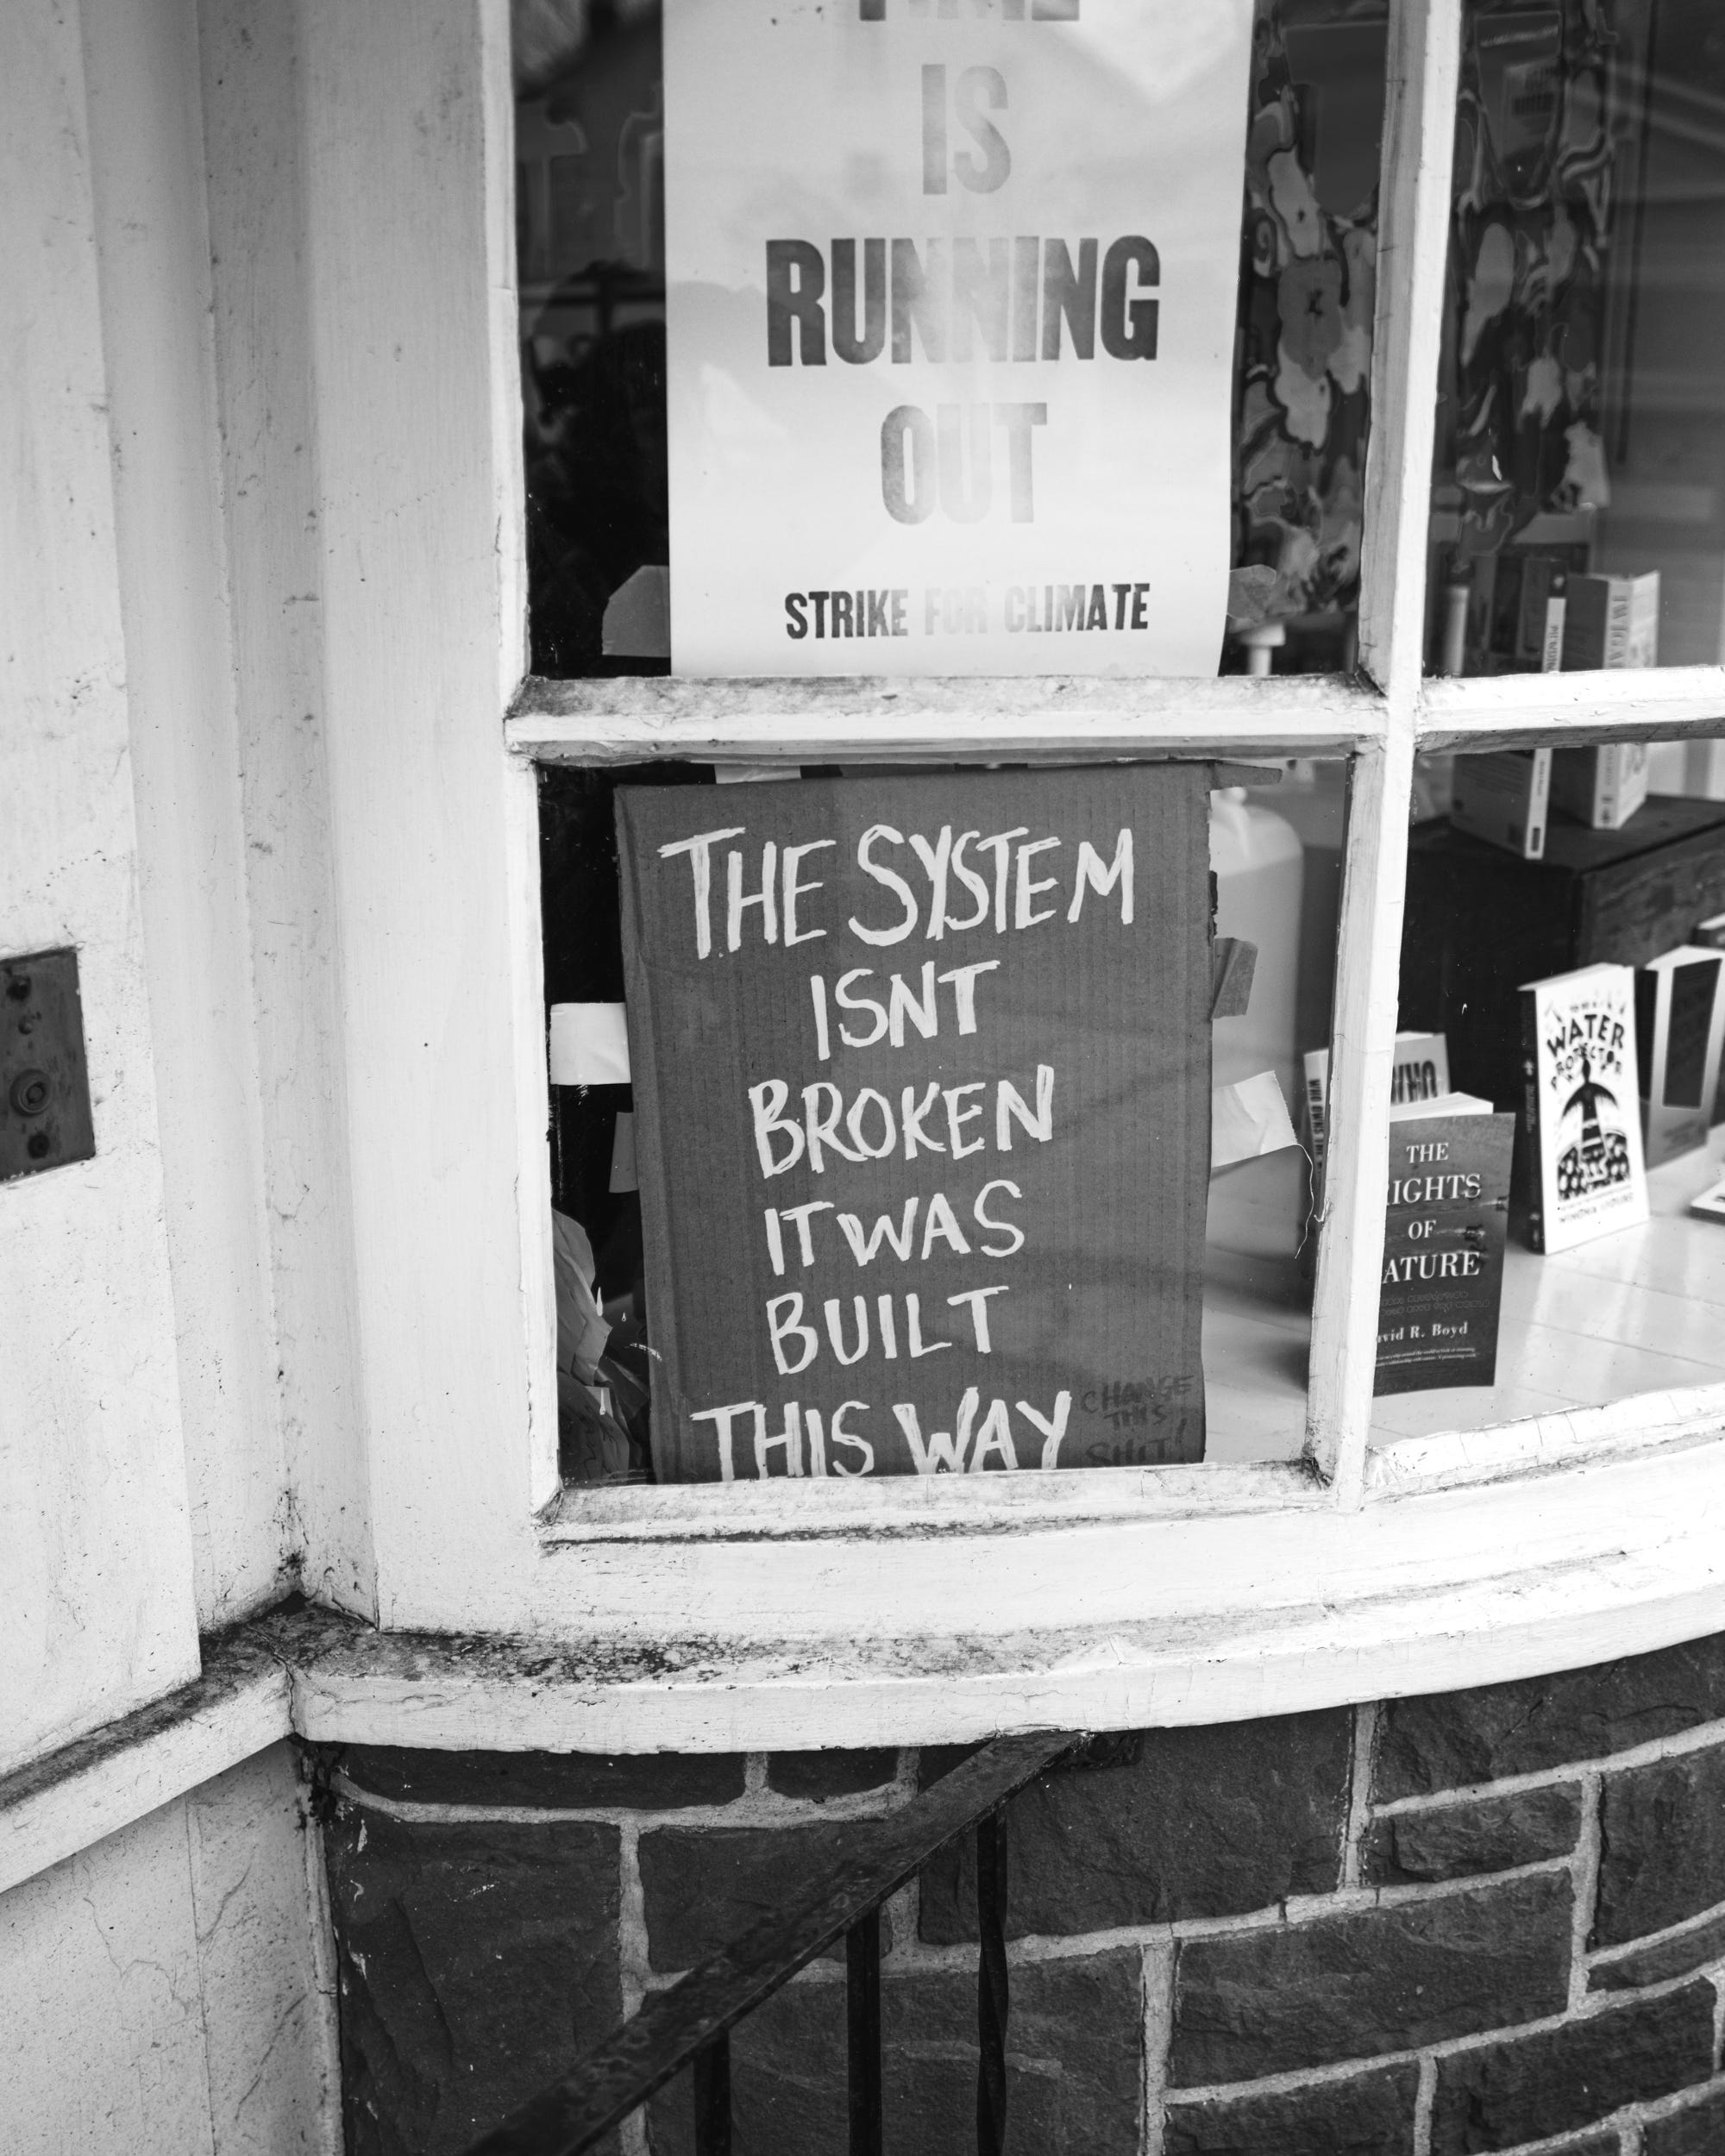 IS
RUNNING
OUT
STRIKE FOR CLIMATE
THE SYSTEM
ISNT
BROKEN
IT WAS
BUILT
THIS WAY
CHANGE
THIS
SHIT!
WHO
THE
WATER
PROTECTOR
THE
IGHTS
OF
ATURE
avid R. Boyd